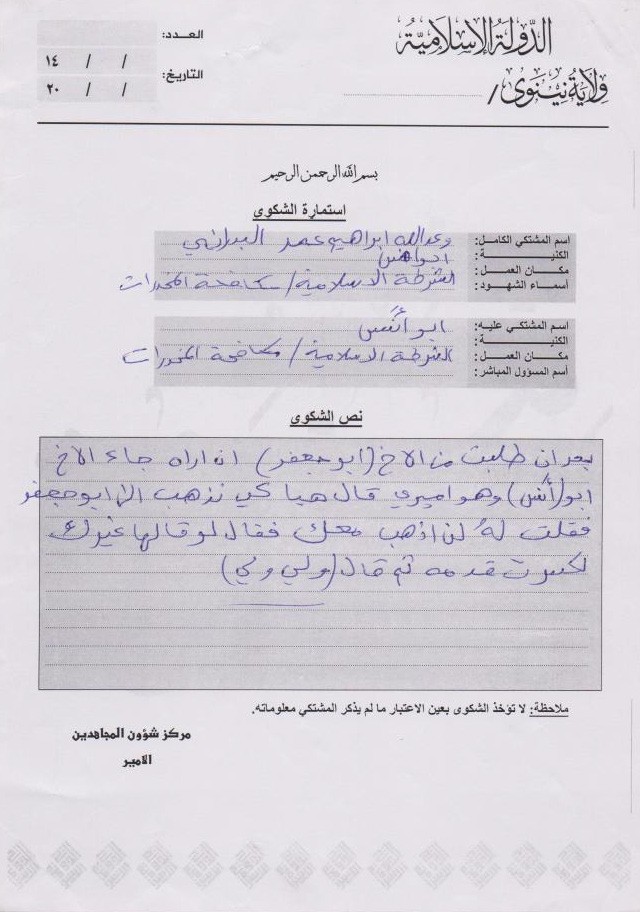 الدولة الإسلامية
ولاية نينوى/
العدد:
/ / ١٤
التاريخ:
/ / ٢٠
بسم الله الرحمن الرحيم
استمارة الشكوى
اسم المشتكي الكامل: وعدالله ابراهيم عمر
الكنية:
مكان العمل: الشرطة الاسلامية / مكافحة المخدرات
أسماء الشهود:
اسم المشتكي عليه: ابو أنس
الكنية:
مكان العمل: الشرطة الاسلامية / مكافحة المخدرات
اسم المسؤول المباشر:
نص الشكوى
بعد ان طلبت من الاخ (ابو جعفر) ان اراه جاء الاخ
ابو (أنس) وهو اميري قال هيا كي نذهب الى ابو جعفر
فقلت له لن اذهب معك فقال لو قالها غيرك
لكسرت قدمه ثم قال (ولي ولي)
ملاحظة: لا تؤخذ الشكوى بعين الاعتبار ما لم يذكر المشتكي معلوماته.
مركز شؤون المجاهدين
الامير